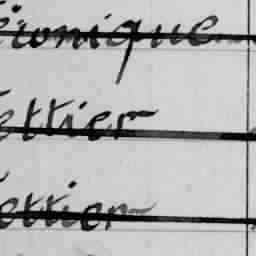 éronique
ettier
ettier